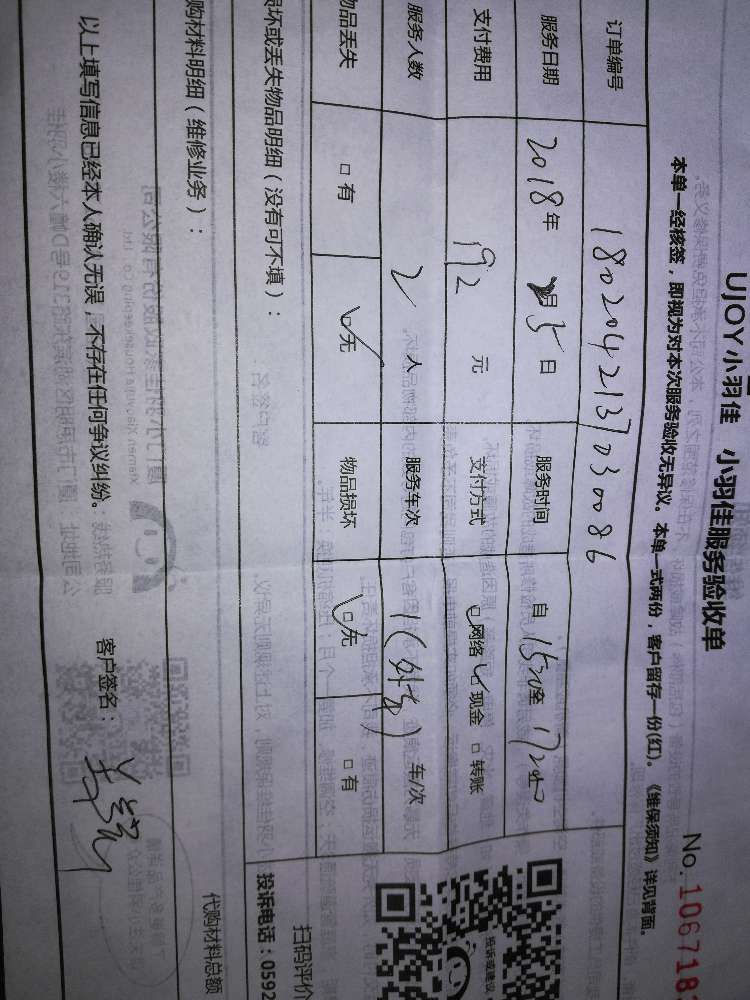 UJOY小羽佳 小羽佳服务验收单
No.106718
本单一经核签，即视为对本次服务验收无异议。本单一式两份，客户留存一份(红)。《维保须知》详见背面。
订单编号 1802042137030086
服务日期 2018年 月5日 服务时间 自 至
支付费用 192 元 支付方式 网络 现金 转账
服务人数 2 人 服务车次 1 车/次
物品丢失 有 无 物品损坏 无 有
坏或丢失物品明细（没有可不填）：
购材料明细（维修业务）：
代购材料总额
以上填写信息已经本人确认无误，不存在任何争议纠纷。
客户签名：
投诉或建议
扫码评价
投诉电话：0592